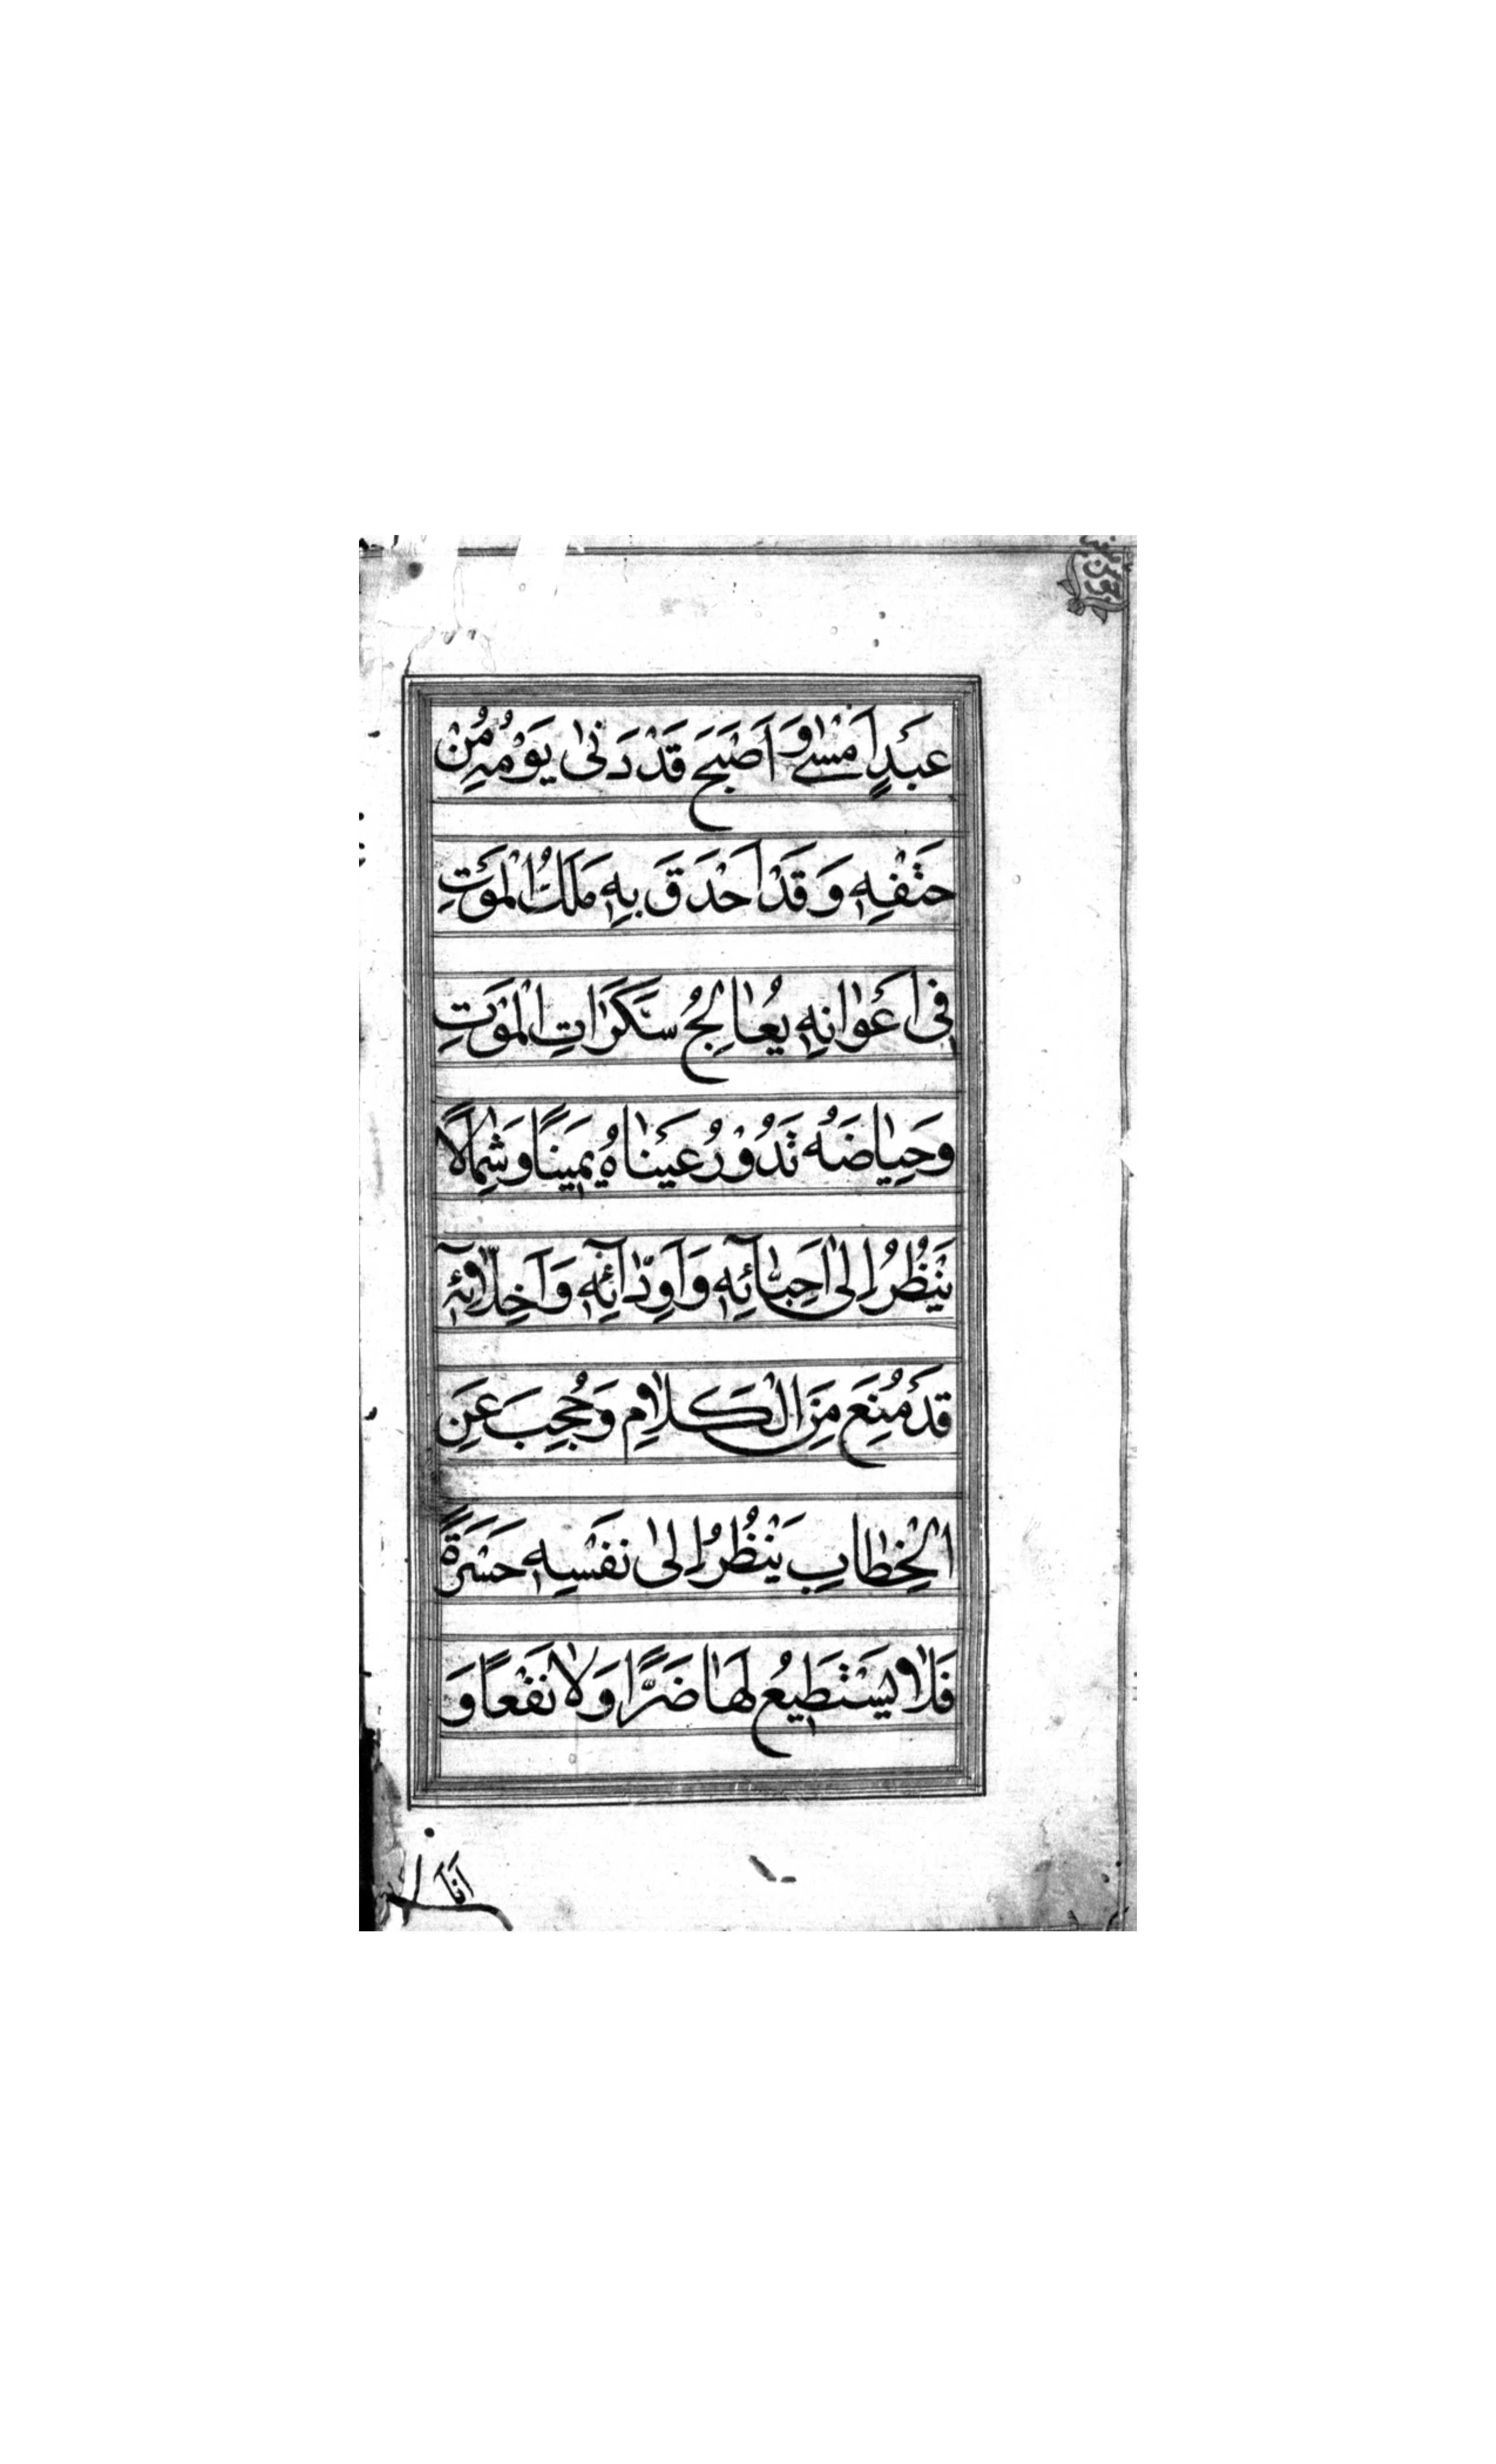 عَبْدٍ اَمْسٰى وَ اَصْبَحَ قَدْ دَنٰى يَوْمُهُ مِنْ
حَتْفِهٖ وَ قَدْ اَحْدَقَ بِهٖ مَلَكُ الْمَوْتِ
فى اَعْوٰانِهٖ يُعٰالِجُ سَكَرٰاتِ الْمَوْتِ
وَ حِيٰاضَهُ تَدُوْرُ عَيْنٰاهُ يَمِيْنًا وَ شِمٰالًا
يَنْظُرُ اِلىٰ اَحِبّٰآئِهٖ وَ اَوِدّٰآئِهٖ وَ اَخِلّٰآئِهٖ
قَدْ مُنِعَ مِنَ الْكَلٰامِ وَ حُجِبَ عَنِ
الْخِطٰابِ يَنْظُرُ اِلىٰ نَفْسِهٖ حَسْرَةً
فَلٰا يَسْتَطِيعُ لَهٰا ضَرًّا وَ لٰا نَفْعًا وَ
اَنَا